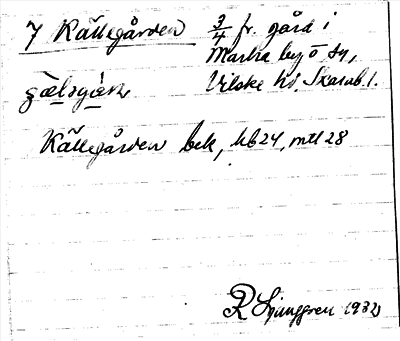 7 Källegården
3/4 fr. gård i
Marka by o sn,
Vilske hd, Skarab. l.
Källegården bek, hb 24, mtl 28
R Ljunggren 1932